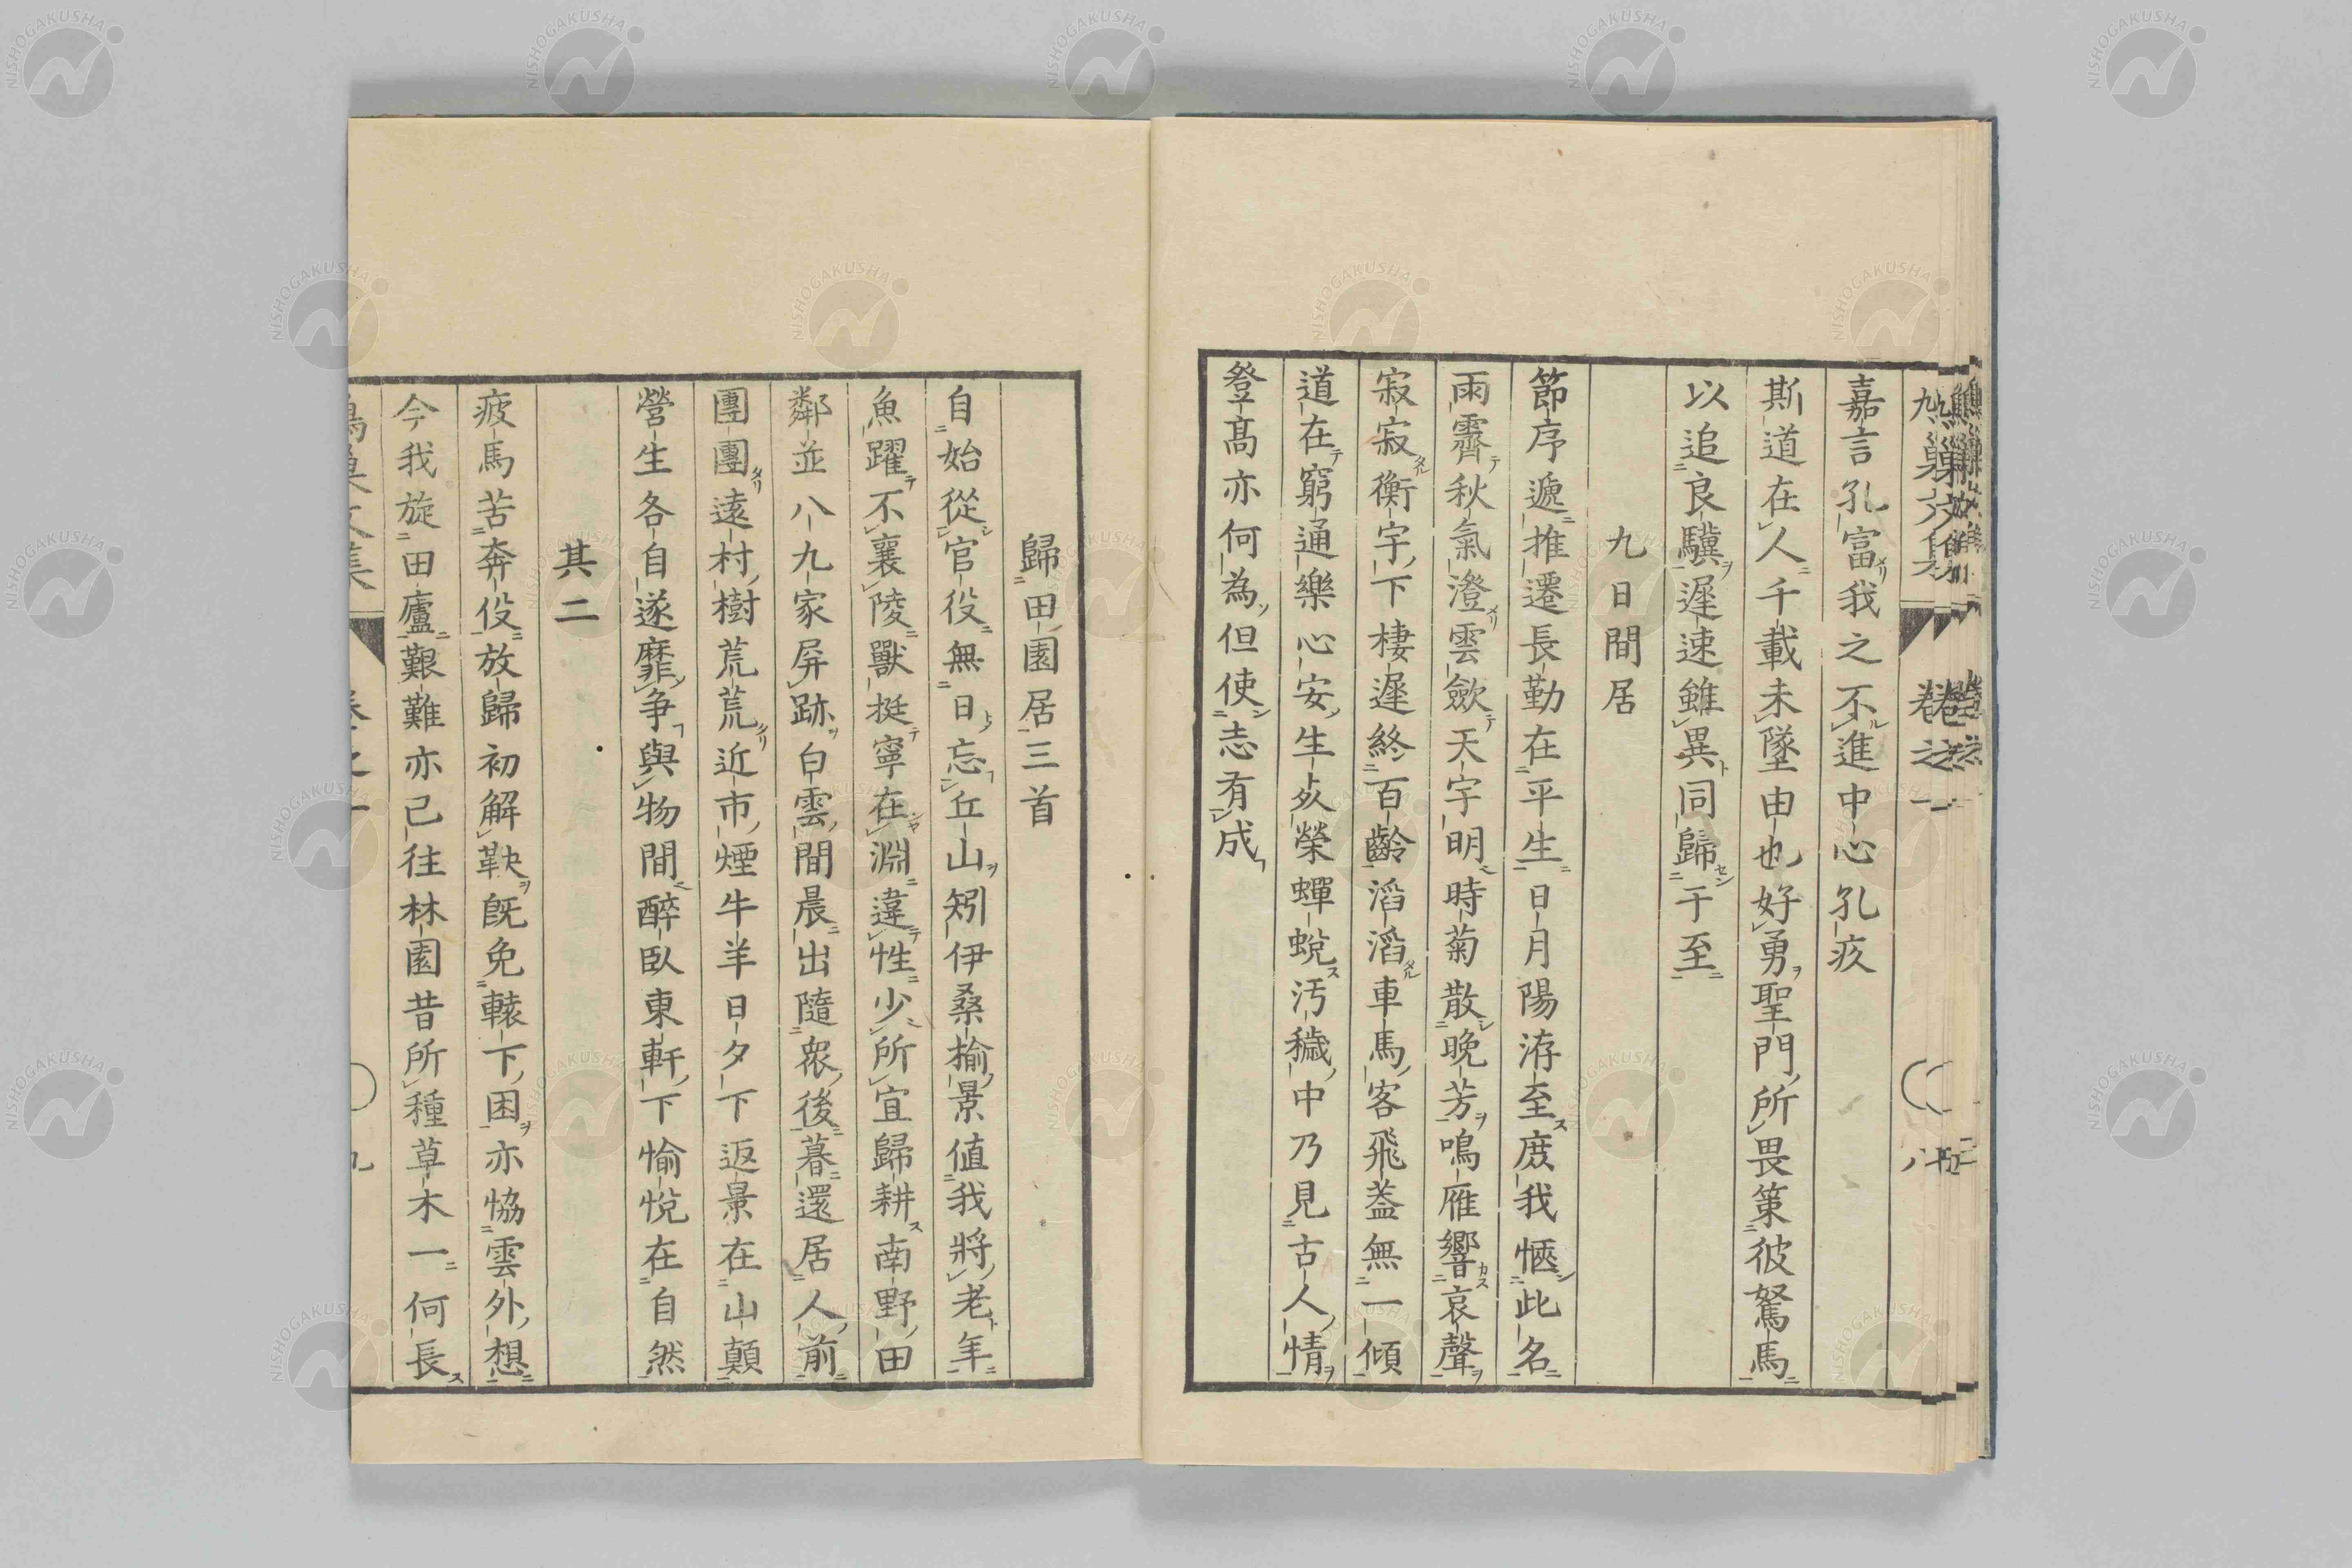 嘉言孔富我之不進中心孔疚
斯道在人千載未墜由也好勇聖門所畏策彼駑馬
以追良驥遲速雖異同歸于至
九日間居
節序遞推遷長勤在平生日月陽洊至度我愜此名
雨霽秋氣澄雲歛天宇明時菊散晚芳鳴雁響哀聲
寂寂衡宇下棲遲終百齡滔滔車馬客飛蓋無一傾
道在窮通樂心安生死榮蟬蛻汚穢中乃見古人情
登高亦何為但使志有成
歸田園居三首
自始從官役無日忘丘山矧伊桑榆景値我將老年
魚躍不襄陵獸挺寧在淵違性少所宜歸耕南野田
鄰並八九家屏跡白雲間晨出隨衆後暮還居人前
團團遠村樹荒荒近市煙牛羊日夕下返景在山顛
營生各自遂靡争與物間醉臥東軒下愉悅在自然
其二
疲馬苦奔役放歸初解鞅既免轅下困亦恊雲外想
今我旋田廬艱難亦已往林園昔所種草木一何長